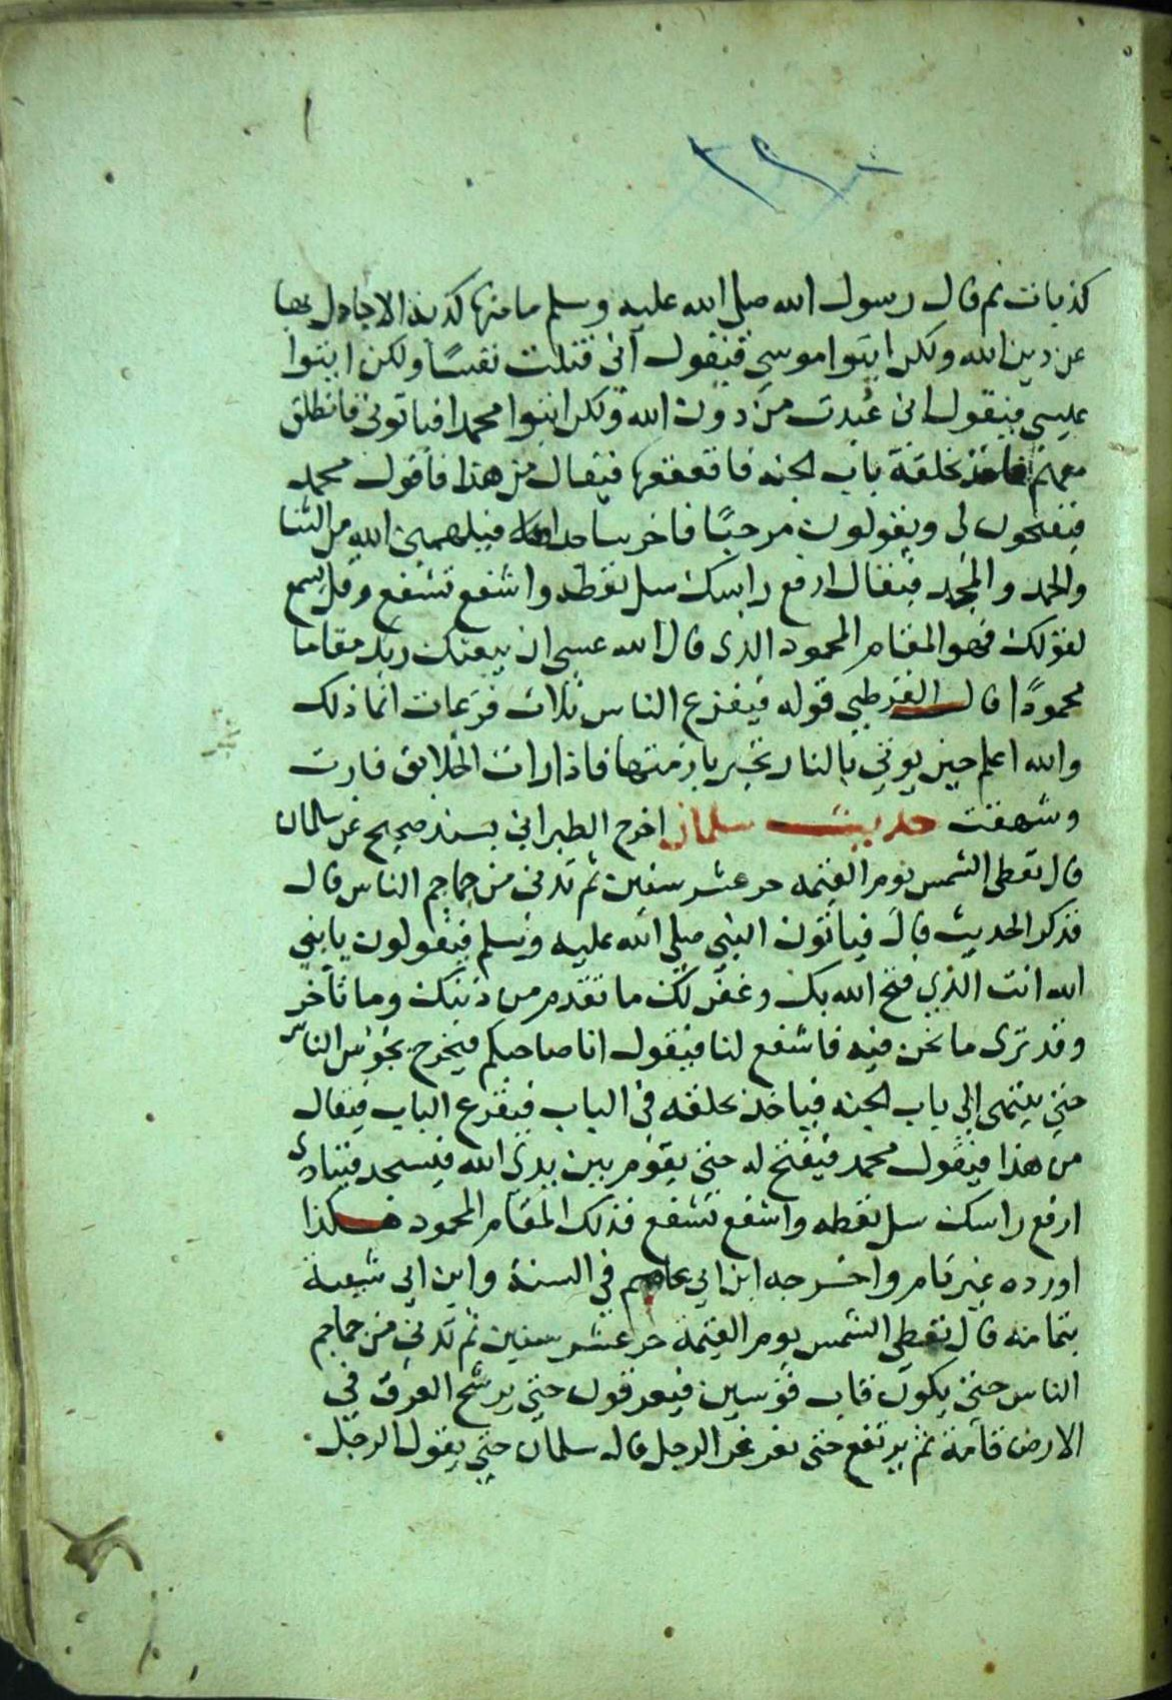 ٢٩٠
كذبات ثم قال رسول الله صلى الله عليه وسلم ما منها كذبة الا جادل بها
عن دين الله ولكن ايتوا موسى فيقول اني قتلت نفسًا ولكن ايتوا
عيسى فيقول اني عُبدت من دون الله ولكن ايتوا محمدا فياتوني فانطلق
معهم فاخذ بحلقة باب الجنه فاقعقعها فيقال من هذا فاقول محمد
فيفتحون لي ويقولون مرحبًا فاخر ساجدا لله فيلهمني الله من الثنا
والحمد والمجد فيقال ارفع راسك سل تعطه واشفع تشفع وقل يسمع
لقولك فهو المقام المحمود الذى قال الله عسى ان يبعثك ربك مقاما
محمودًا قال القرطبي قوله فيفزع الناس ثلاث فزعات انما ذلك
والله اعلم حين يوتي بالنار تجر بازمتها فاذا رات الخلايق فارت
وشهقت حديث سلمان اخرج الطبراني بسند صحيح عن سلمان
قال تعطى الشمس يوم القيمه حر عشر سنين ثم تدنى من جماجم الناس قال
فذكر الحديث قال فياتون النبي صلى الله عليه وسلم فيقولون يا نبي
الله انت الذي فتح الله بك وغفر لك ما تقدم من ذنبك وما تأخر
وقد ترى ما نحن فيه فاشفع لنا فيقول انا صاحبكم فيخرج يجوس الناس
حتى ينتهى إلى باب الجنه فياخذ بحلقه في الباب فيقرع الباب فيقال
من هذا فيقول محمد فيفتح له حتى يقوم بين يدي الله فيسجد فينادى
ارفع راسك سل تعطه واشفع تشفع فذلك المقام المحمود هكذا
اورده غير تام واخرجه ابن ابي عاصم في السنة وابن ابي شيبة
بتمامه قال تعطى الشمس يوم القيمة حر عشر سنين ثم تدنى من جماجم
الناس حتى يكون قاب قوسين فيعرقون حتى يرشح العرق في
الارض قامة ثم يرتفع حتى يغرغر الرجل قال سلمان حتى يقول الرجل